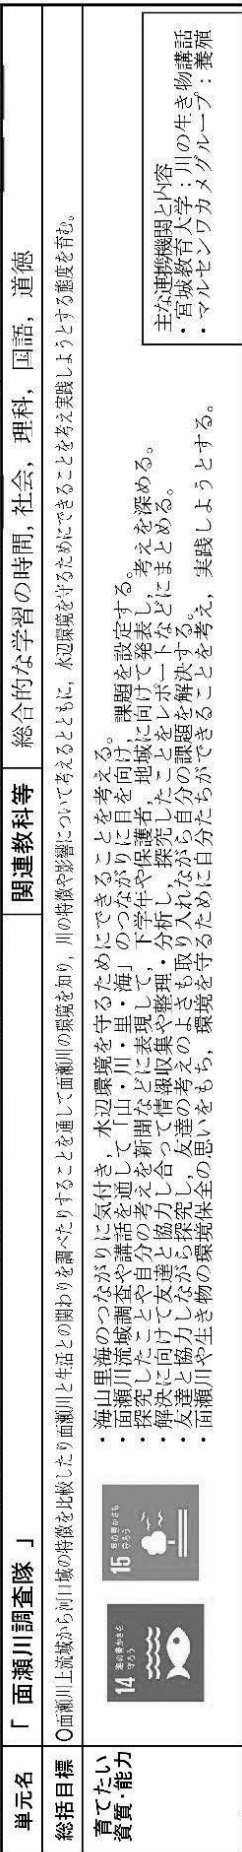 単元名
「 面瀬川調査隊 」
関連教科等
総合的な学習の時間，社会，理科，国語，道徳
総括目標
○面瀬川上流域から河口域の特徴を比較したり面瀬川と生活との関わりを調べたりすることを通して面瀬川の環境を知り，川の特徴や影響について考えるとともに，水辺環境を守るためにできることを考え実践しようとする態度を育む。
育てたい
資質・能力
14 海の豊かさを
守ろう
15 陸の豊かさも
守ろう
・海山里海のつながりに気付き，水辺環境を守るためにできることを考える。
・面瀬川流域調査や講話を通して「山・川・里・海」のつながりに目を向け，課題を設定する。
・探究したことや自分の考えを新聞などに表現して，下学年や保護者，地域に向けて発表し，考えを深める。
・解決に向けて友達と協力し合って情報収集や整理・分析し，探究したことをレポートなどにまとめる。
・友達と協力しながら探究し，友達の考えのよさも取り入れながら自分の課題を解決する。
・面瀬川や生き物の環境保全の思いをもち，環境を守るために自分たちができることを考え，実践しようとする。
主な連携機関と内容
・宮城教育大学：川の生き物講話
・マルセンワカメグループ：養殖